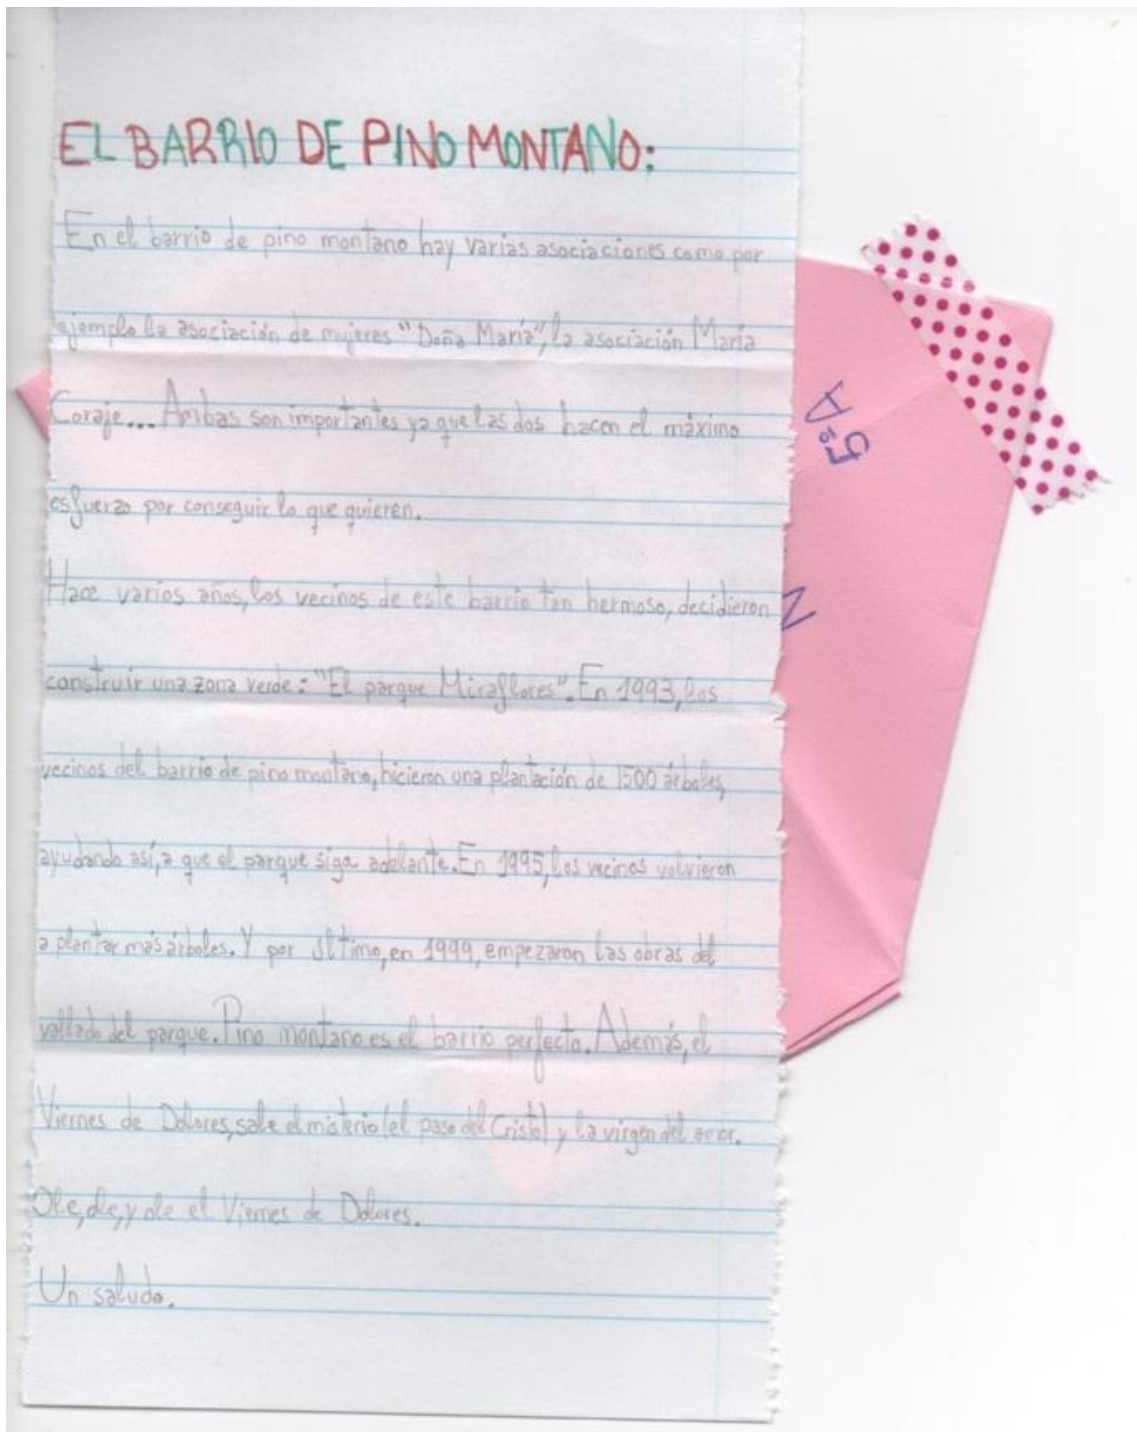 EL BARRIO DE PINO MONTANO:
En el barrio de pino montano hay varias asociaciones como por
ejemplo la asociación de mujeres "Doña María", la asociación María
Coraje... Ambas son importantes ya que las dos hacen el máximo
esfuerzo por conseguir lo que quieren.
Hace varios años, los vecinos de este barrio tan hermoso, decidieron
construir una zona verde: "El parque Miraflores". En 1993, los
vecinos del barrio de pino montano, hicieron una plantación de 1500 árboles,
ayudando así, a que el parque siga adelante. En 1995, los vecinos volvieron
a plantar más árboles. Y por último, en 1999, empezaron las obras del
vallado del parque. Pino montano es el barrio perfecto. Además, el
Viernes de Dolores, sale el misterio (el paso del Cristo) y la virgen del amor.
Ole, ole, y ole el Viernes de Dolores.
Un saludo.
5ºA
N